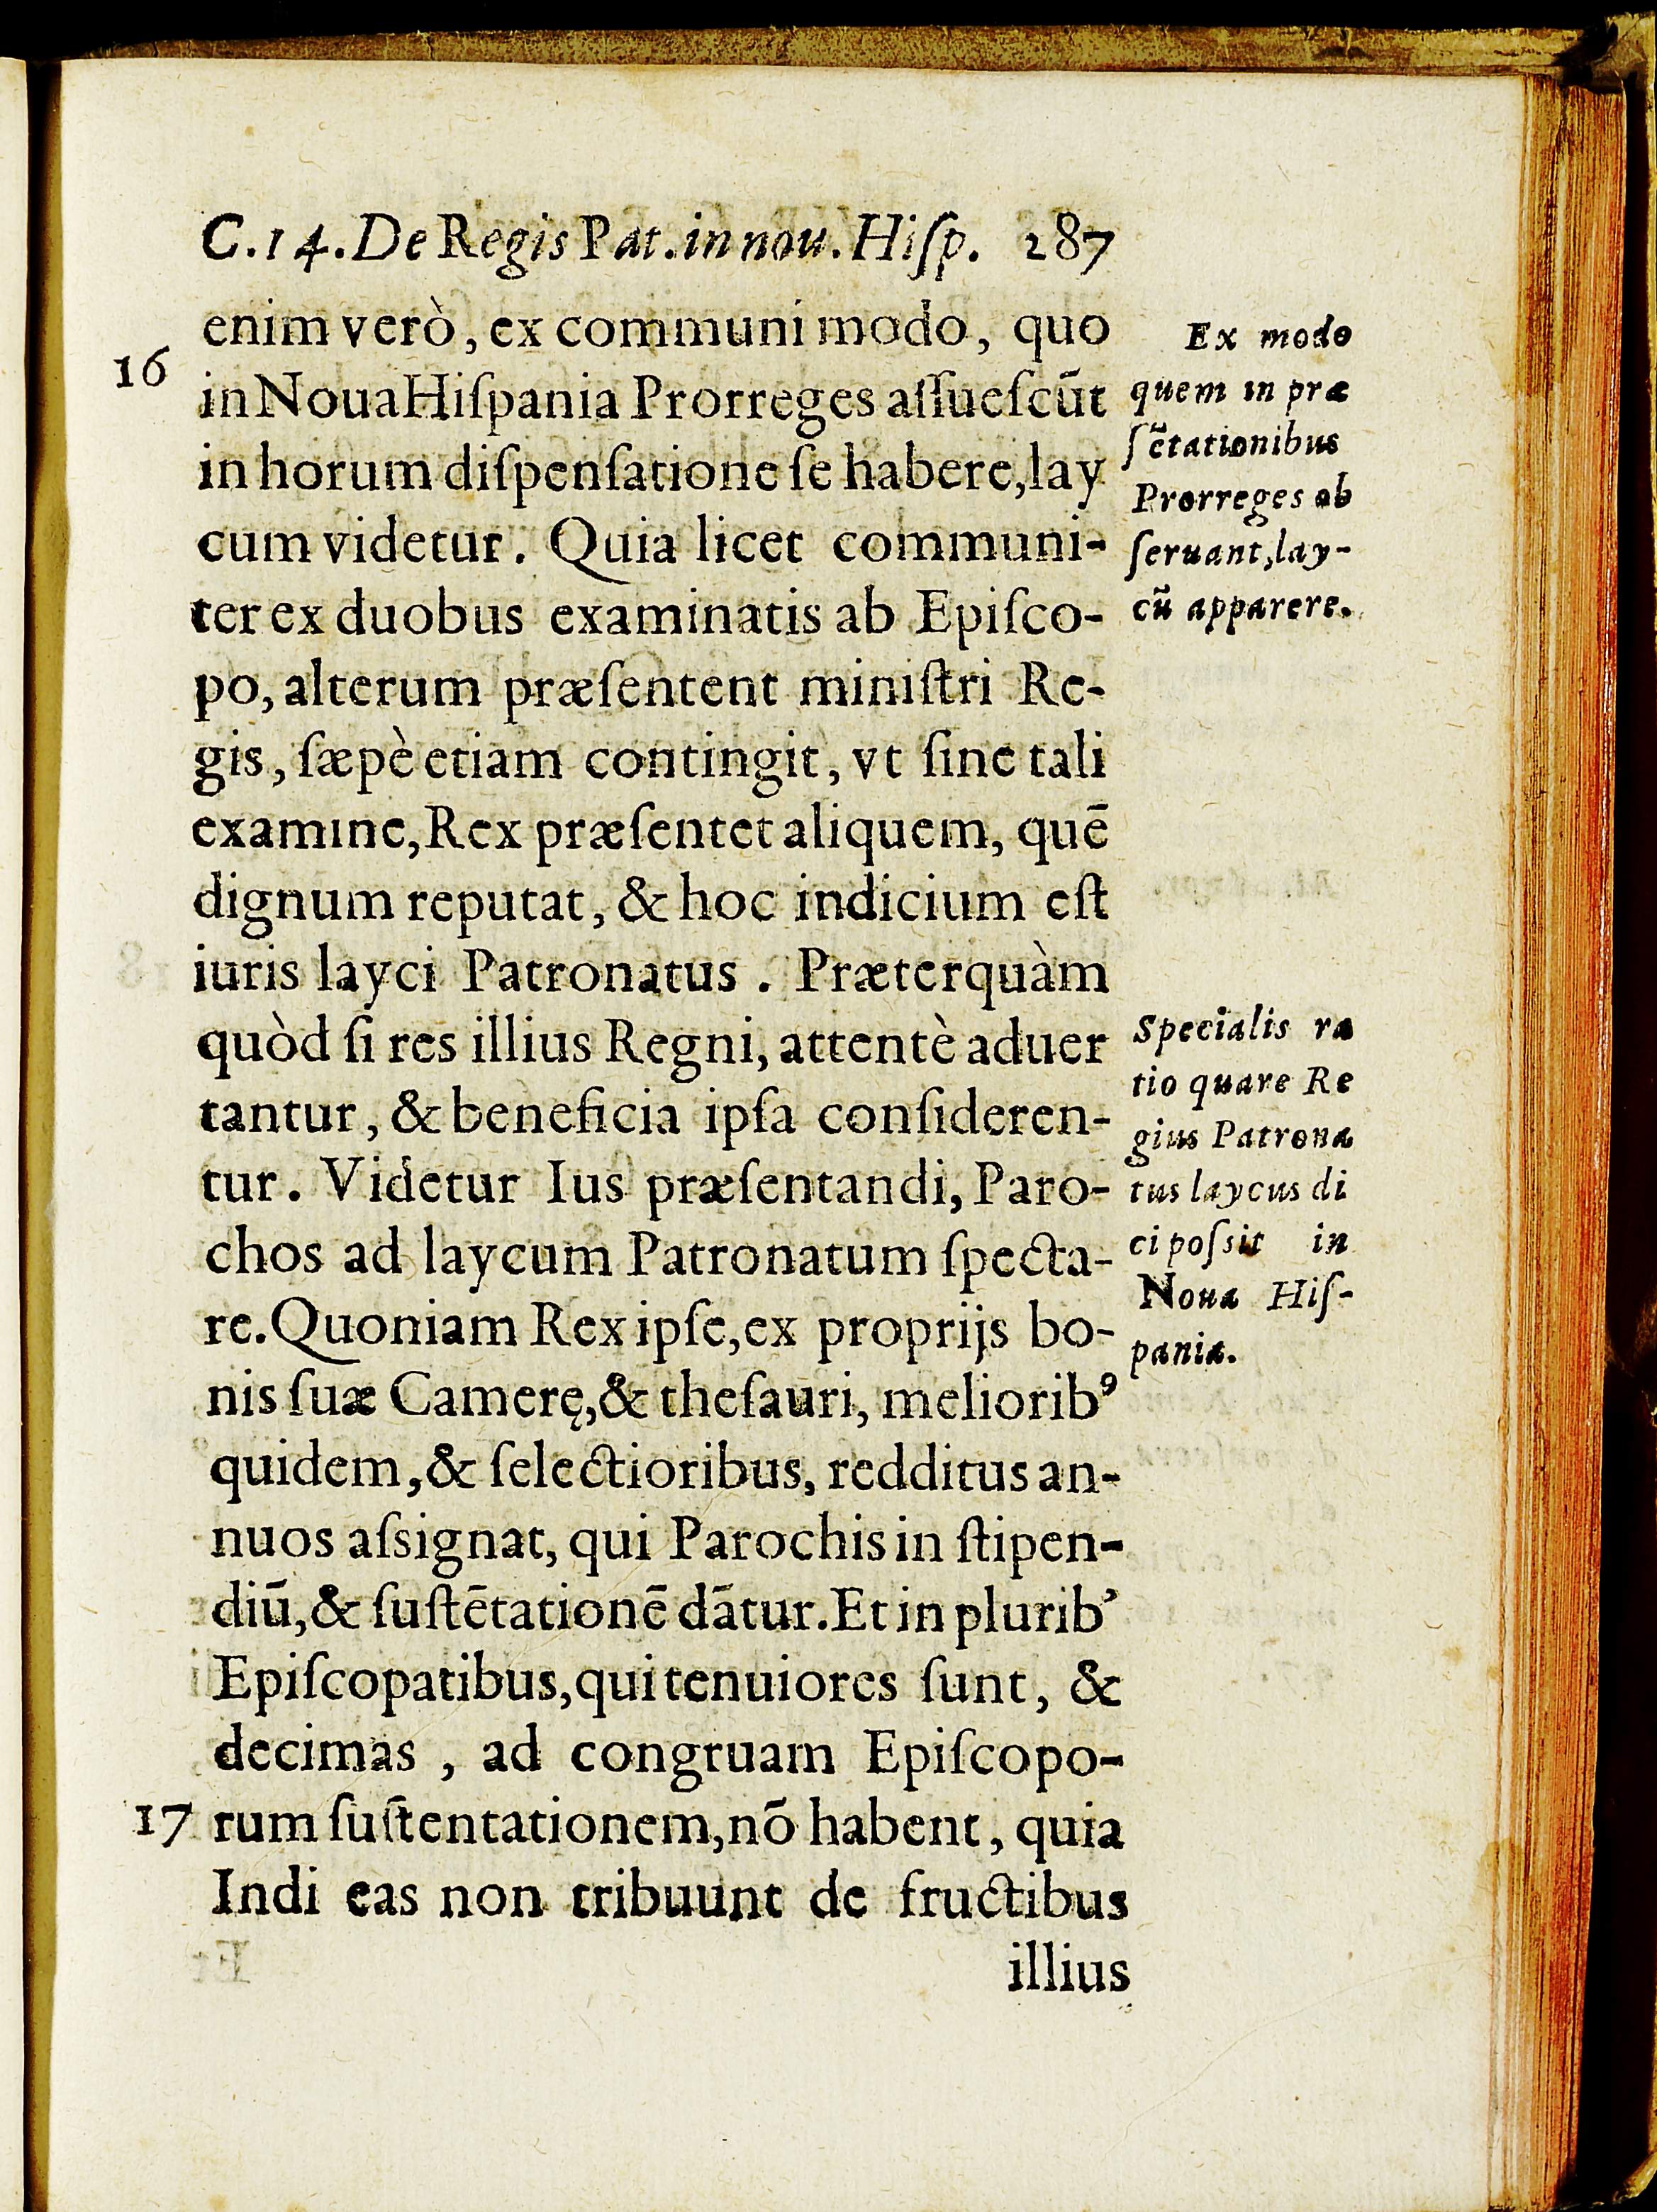 C.14.De Regis Pat.in nou.Hiſp. 287
enim verò, ex communi modo, quo
16
in Noua Hiſpania Prorreges aſſueſcūt
in horum diſpenſatione ſe habere, lay
cum videtur. Quia licet communi-
ter ex duobus examinatis ab Epiſco-
po, alterum præſentent miniſtri Re-
gis, ſæpè etiam contingit, vt ſine tali
examine, Rex præſentet aliquem, quē
dignum reputat, & hoc indicium eſt
iuris layci Patronatus. Præterquàm
quòd ſi res illius Regni, attentè aduer
tantur, & beneficia ipſa conſideren-
tur. Videtur Ius præſentandi, Paro-
chos ad laycum Patronatum ſpecta-
re. Quoniam Rex ipſe, ex proprijs bo-
nis ſuæ Camerę, & theſauri, deliorib⁹
quidem, & ſelectioribus, redditus an-
nuos aſsignat, qui Parochis in ſtipen-
diū, & ſuſtētationē dātur. Et in plurib⁹
Epiſcopatibus, qui tenuiores ſunt, &
decimas, ad congruam Epiſcopo-
17
rum ſuſtentationem, nō habent, quia
Indi eas non tribuunt de fructibus
illius
Ex modo
quem in præ
ſētationibus
Prorreges ob
ſeruant, lay-
cū apparere.
Specialis ra
tio quare Re
gius Patrona
tus laycus di
ci poſsit in
Noua Hiſ-
pania.